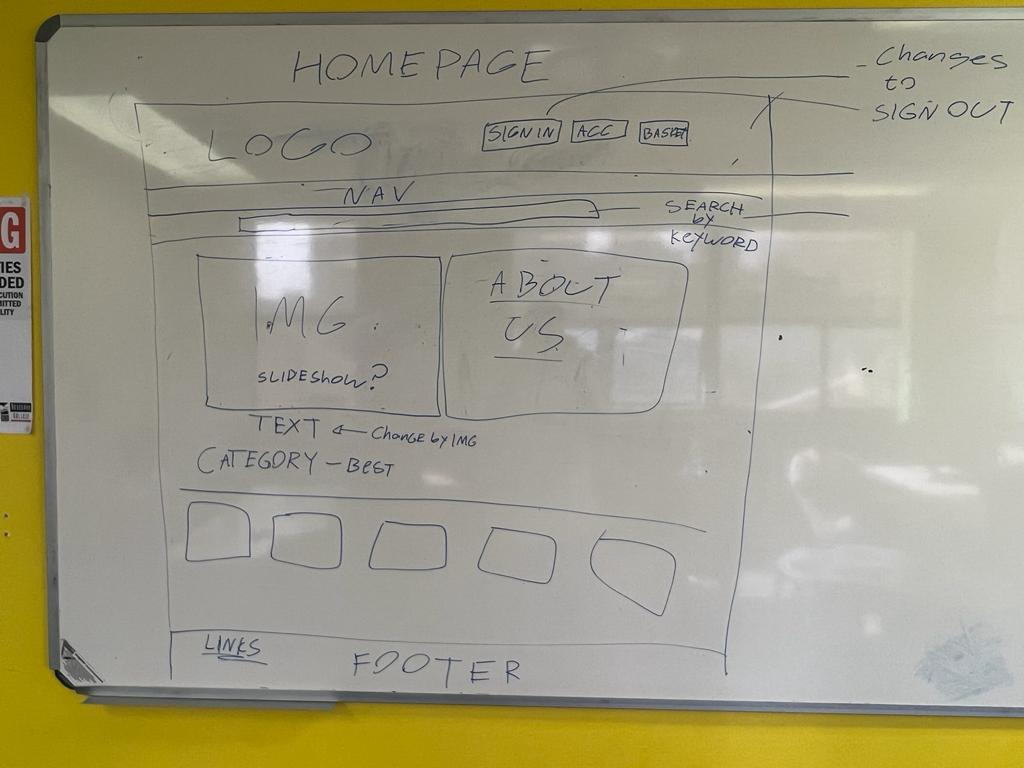 HOMEPAGE
- Changes
to
SIGN OUT
LOGO
SIGN IN
ACC
BASKET
NAV
SEARCH
by
KEYWORD
IMG
SLIDESHOW?
ABOUT
US
TEXT ← Change by IMG
CATEGORY - BEST
LINKS
FOOTER
G
IES
DED
CUTION
ITTED
LITY